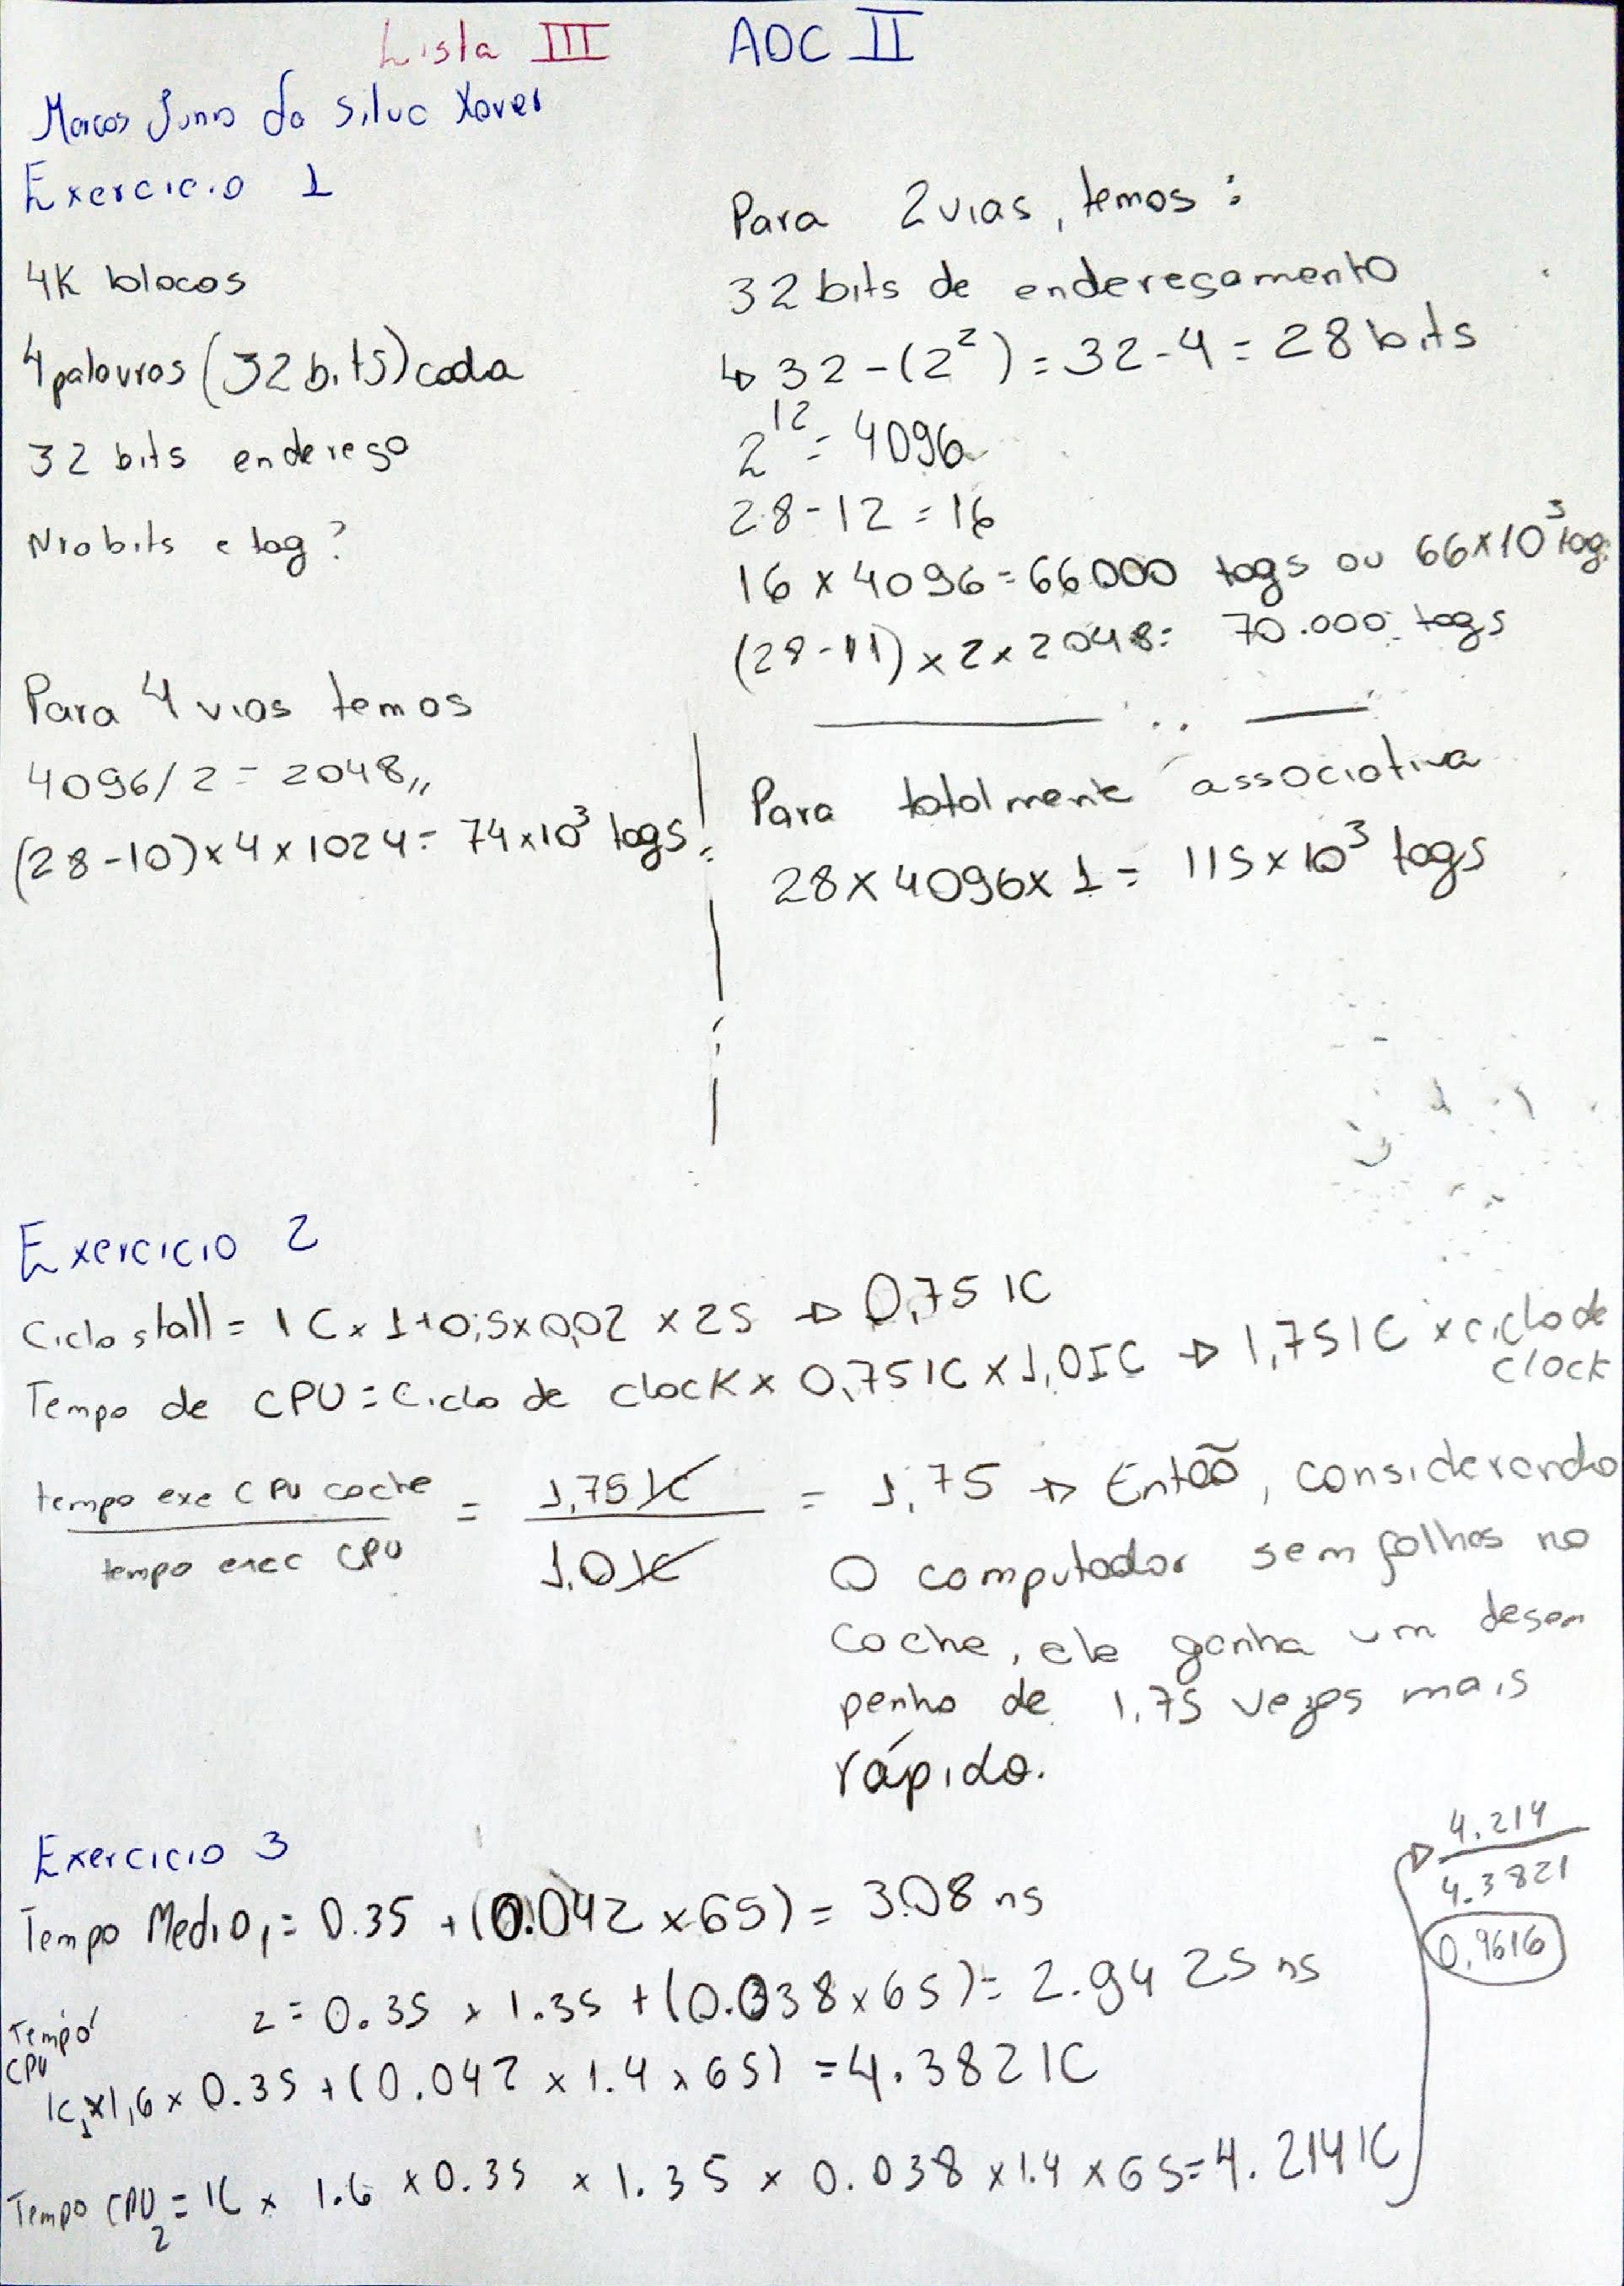 Lista III AOC II
Marcos Junio da Silva Xavier
Exercicio 1
4K blocos
4 palavras (32 bits) cada
32 bits endereço
Nro bits e tag?
Para 2 vias, temos:
32 bits de endereçamento
↳ 32 - (2²) = 32 - 4 = 28 bits
2¹² = 4096
28 - 12 = 16
16 x 4096 = 66000 tags ou 66x10³ tag.
(28 - 11) x 2 x 2048 = 70.000 tags
Para 4 vias temos
4096/2 = 2048,,
(28 - 10) x 4 x 1024 = 74x10³ tags
Para totalmente associativa
28 x 4096 x 1 = 115 x 10³ tags
Exercicio 2
Ciclo stall = IC x 1+0,5x0,02 x 25 → 0,75 IC
Tempo de CPU = Ciclo de clock x 0,75 IC x 1,0 IC → 1,75 IC x ciclo de clock
tempo exe CPU cache / tempo exec CPU = 1,75 IC / 1.0 IC = 1,75 → Então, considerando
o computador sem falhas no
cache, ele ganha um desem
penho de 1,75 vezes mais
rápido.
Exercicio 3
Tempo Medio₁ = 0.35 + (0.042 x 65) = 3.08 ns
2 = 0.35 x 1.35 + (0.038 x 65) = 2.9425 ns
Tempo CPU
IC₁ x 1,6 x 0.35 + (0.042 x 1.4 x 65) = 4.382 IC
Tempo CPU₂ = IC x 1.6 x 0.35 x 1.35 x 0.038 x 1.4 x 65 = 4.214 IC
4.214
4.3821
0,9616